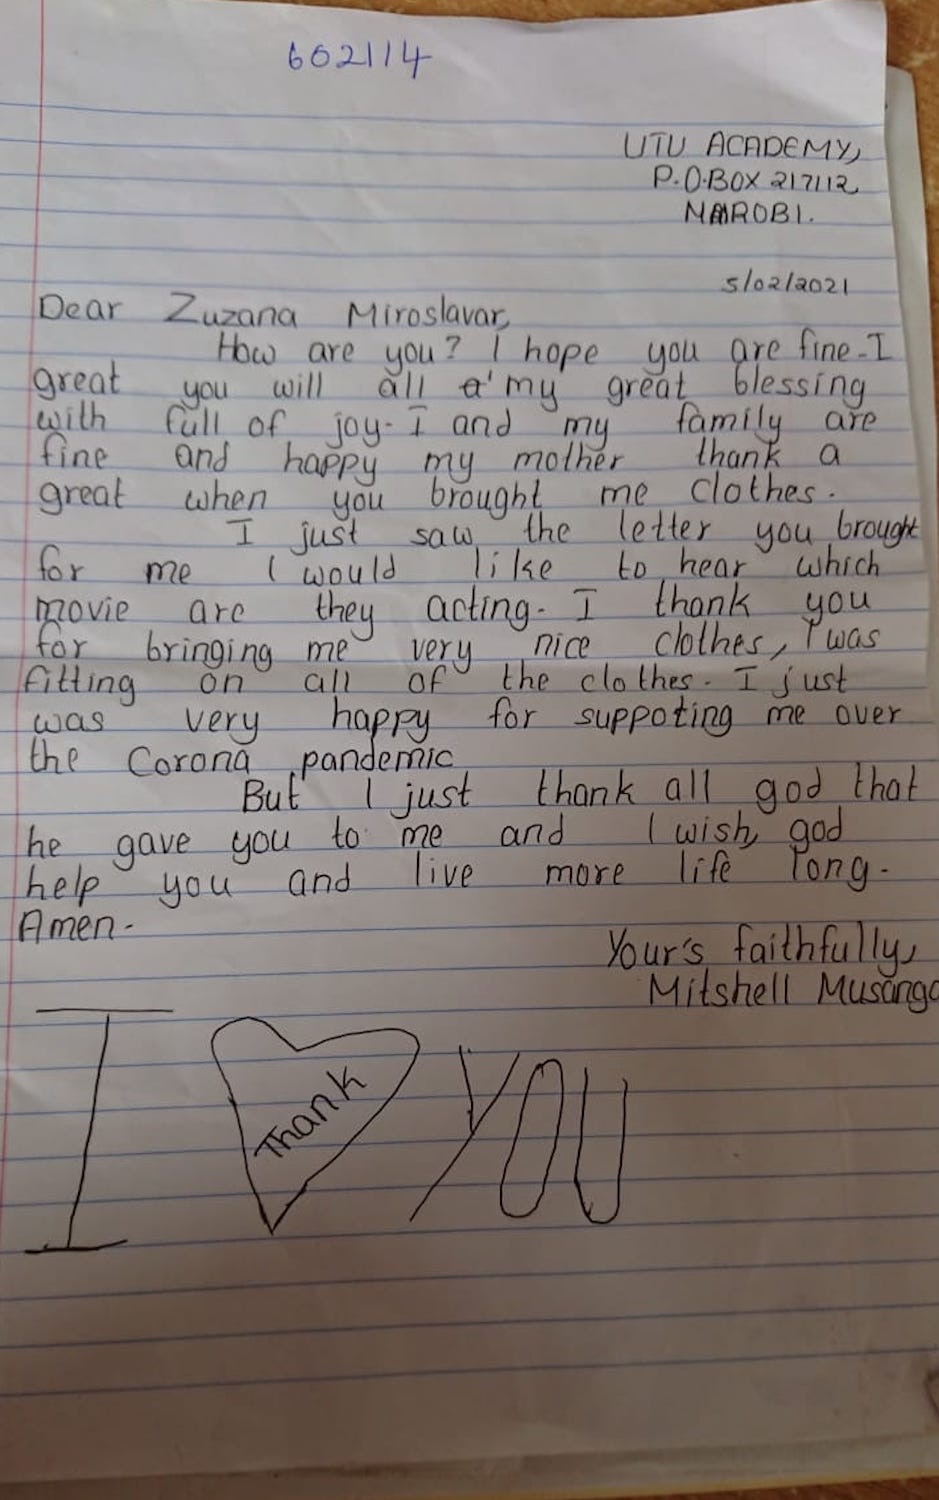 602114
UTU ACADEMY,
P.O.BOX 217112,
NAIROBI.
5/02/2021
Dear Zuzana Miroslavar,
How are you? I hope you are fine. I
great you will all a' my great blessing
with full of joy. I and my family are
fine and happy my mother thank a
great when you brought me clothes.
I just saw the letter you brought
for me I would like to hear which
movie are they acting. I thank you
for bringing me very nice clothes, I was
fitting on all of the clothes. I just
was very happy for suppoting me over
the Corona pandemic
But I just thank all god that
he gave you to me and I wish, god
help you and live more life long.
Amen.
Your's faithfully,
Mitshell Musanga
I Thank YOU